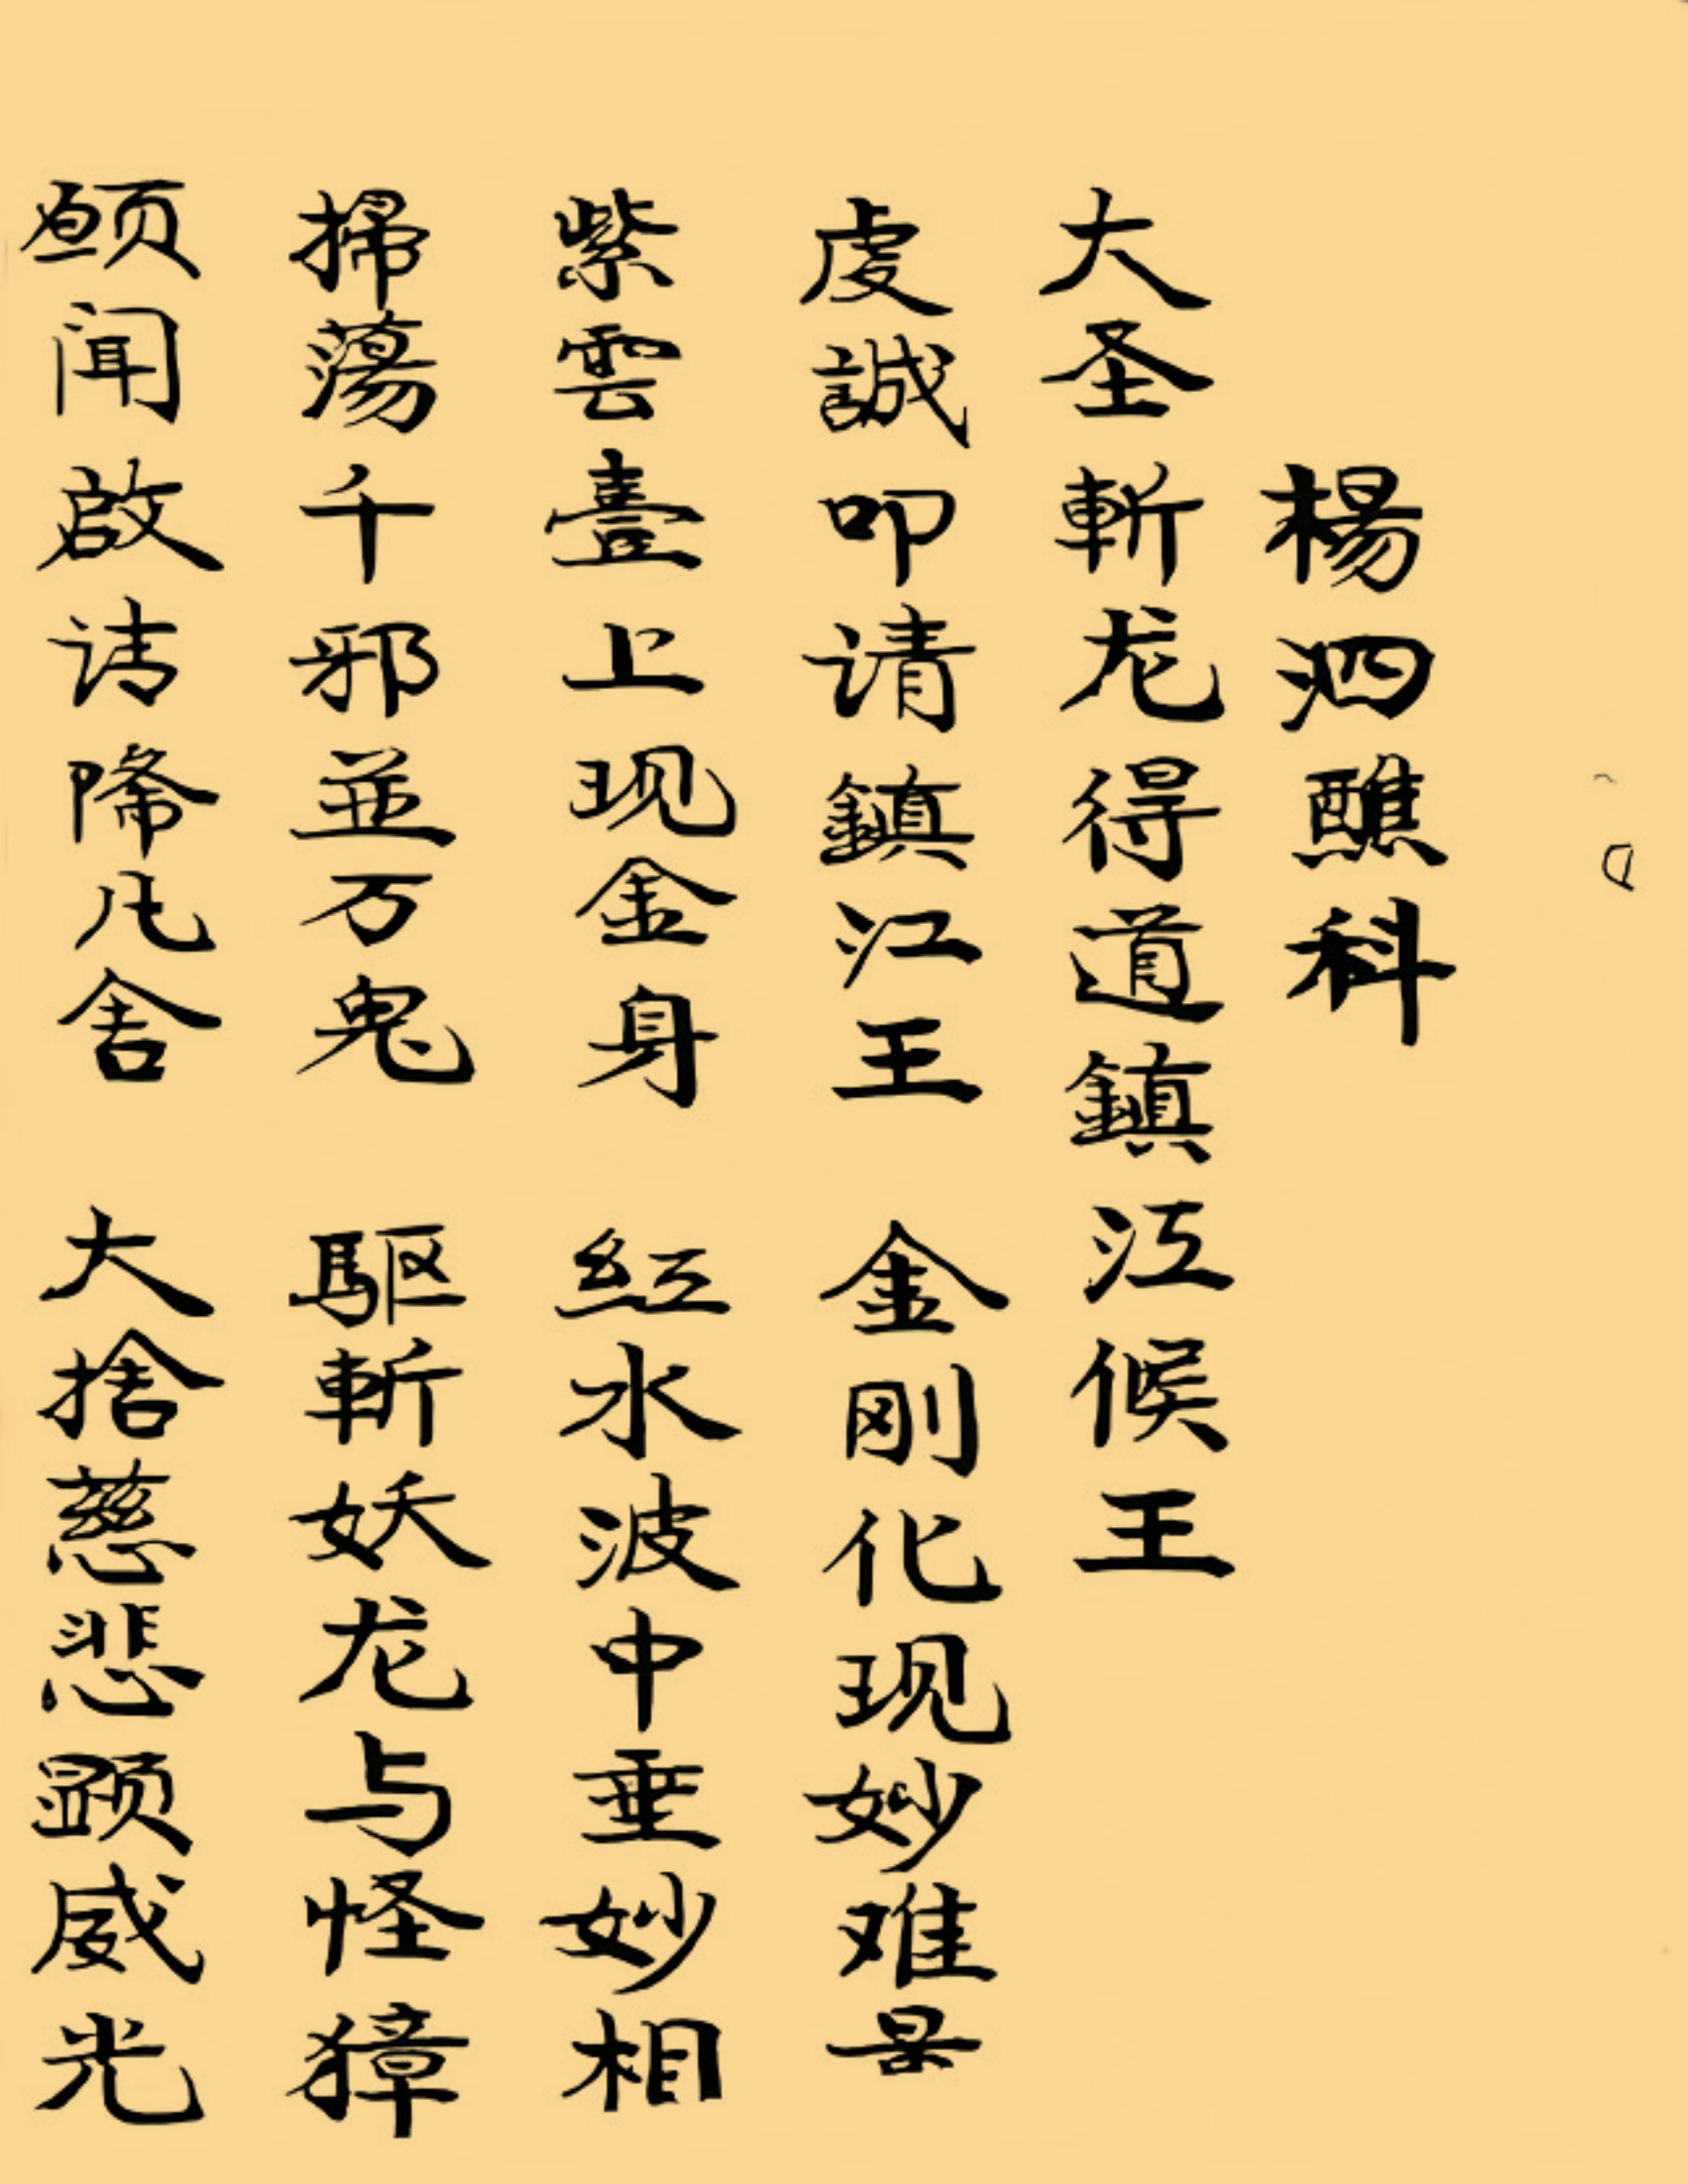 楊泗醮科
大圣斬龙得道鎮江候王
虔誠叩请鎮江王 金刚化现妙难量
紫雲臺上现金身 紅水波中垂妙相
掃蕩千邪並万鬼 驱斬妖龙与怪獐
願闻啟请降凡舍 大捨慈悲顕威光